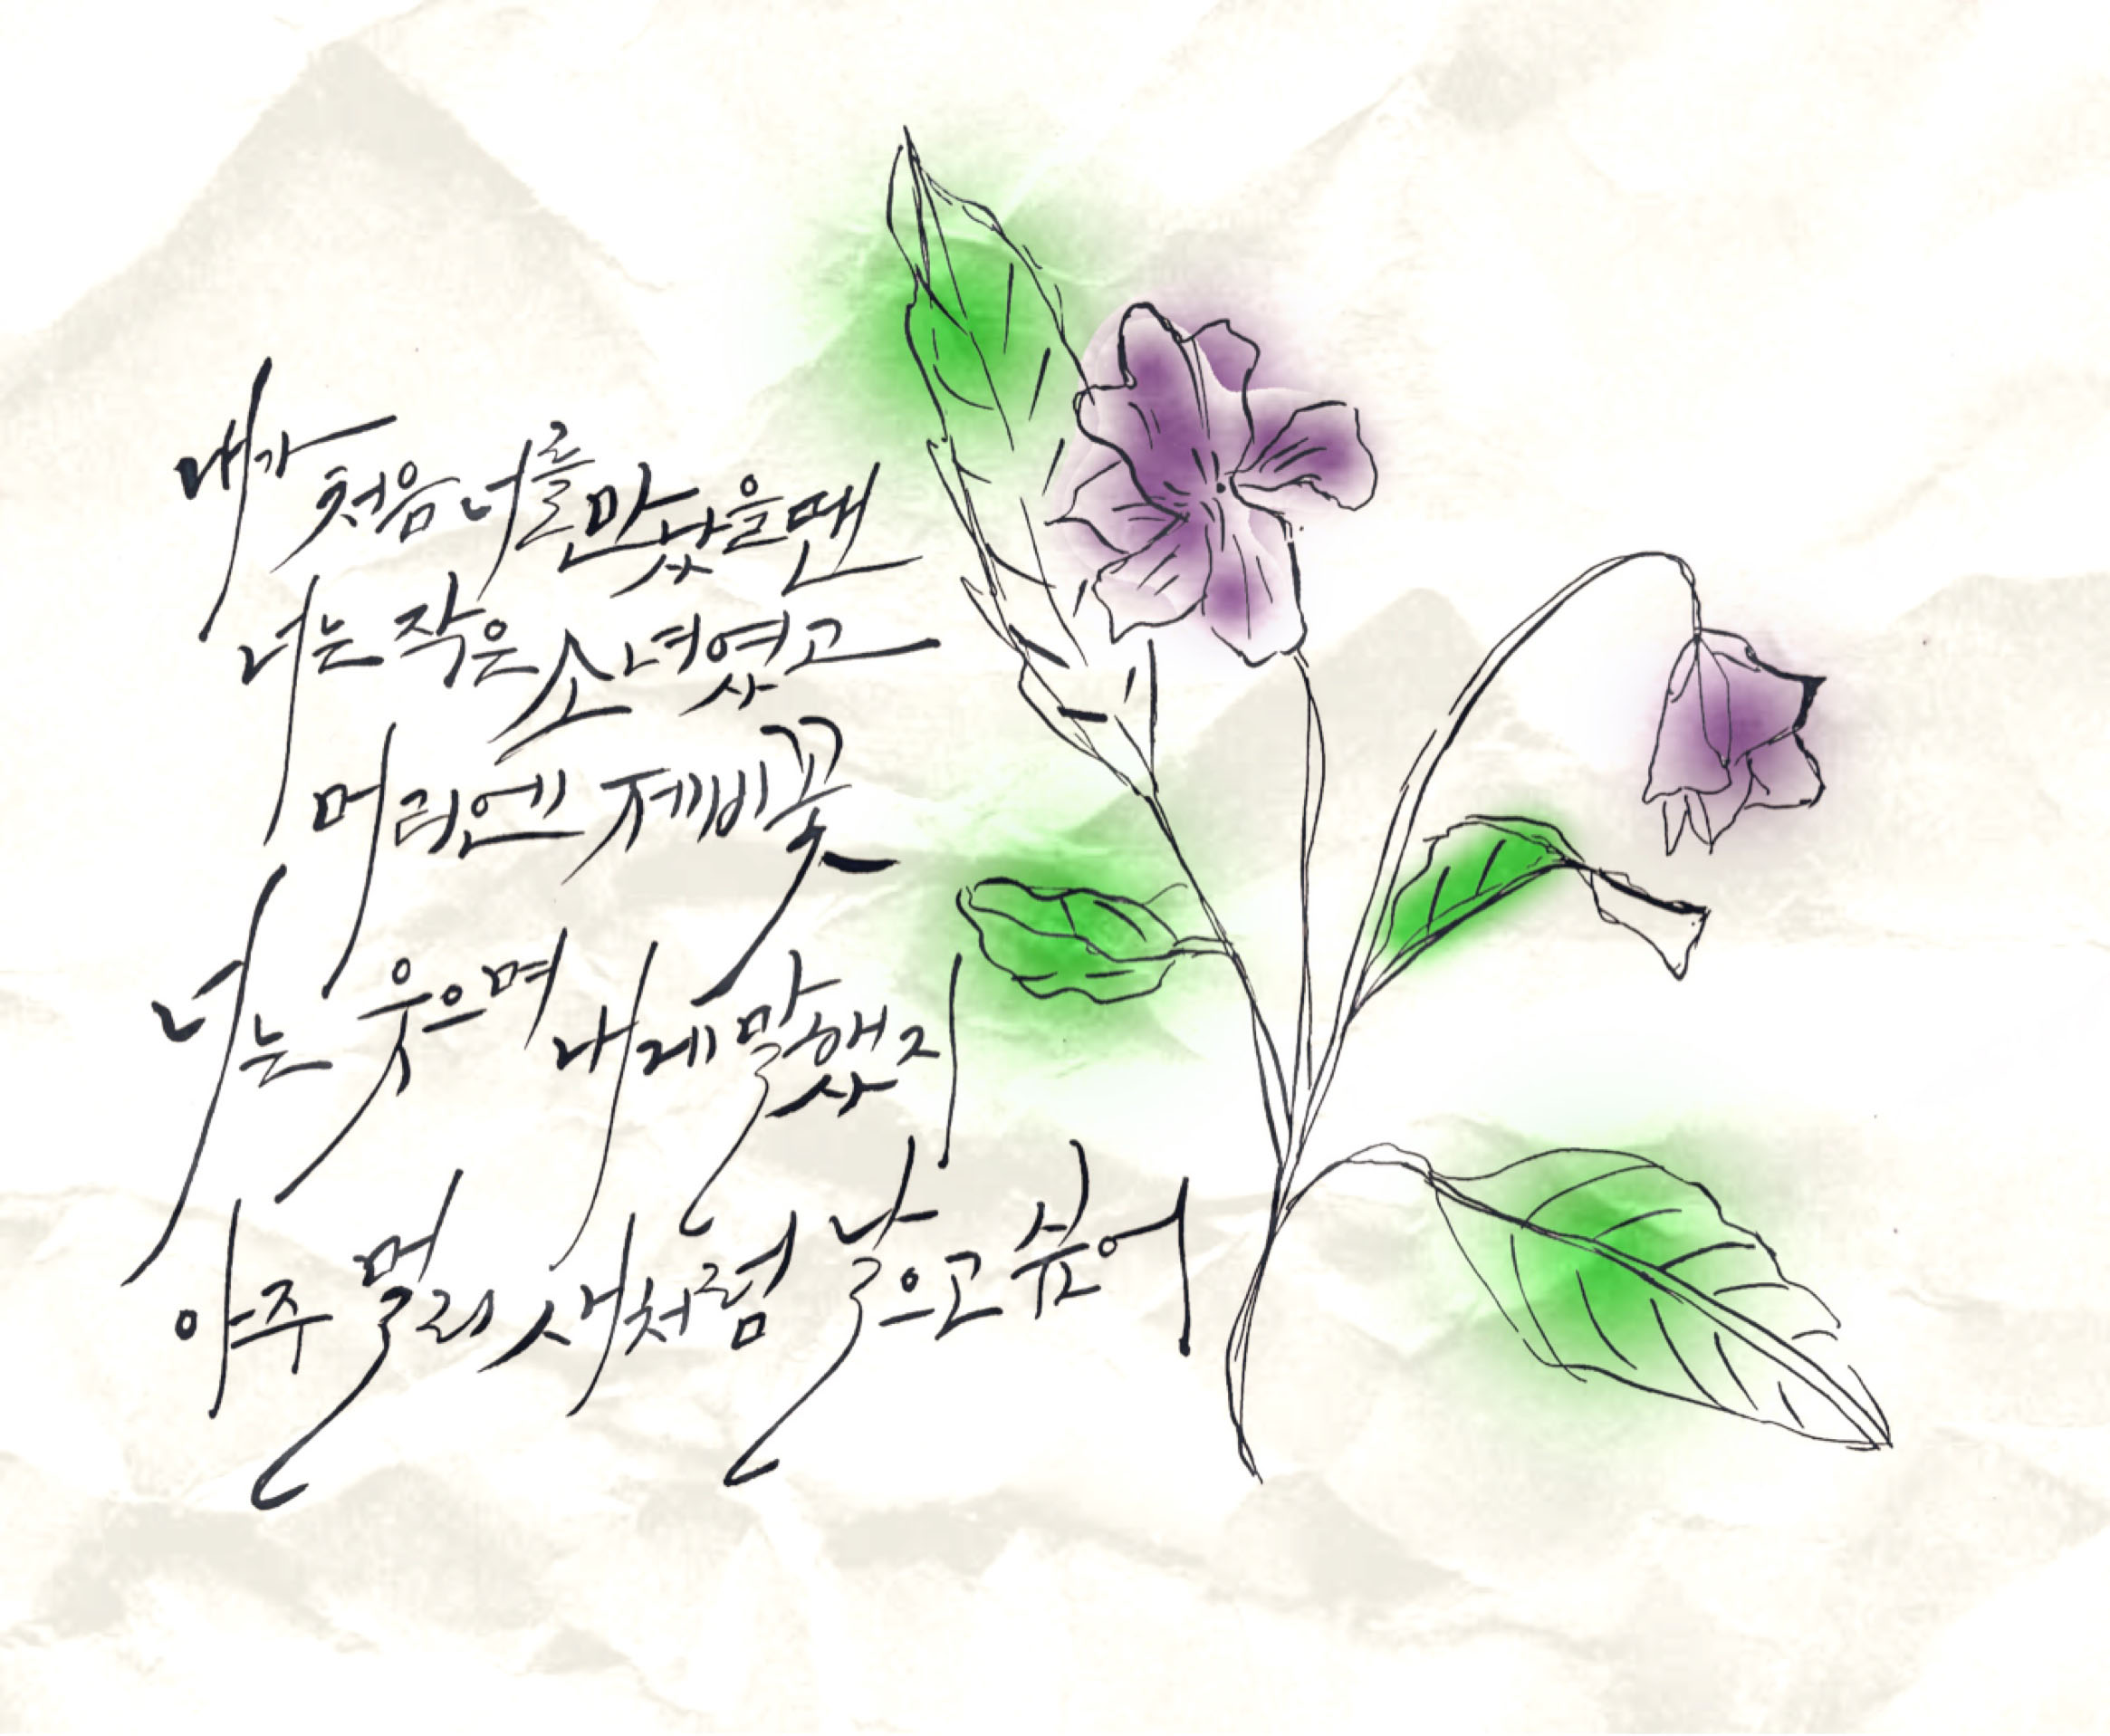 내가 처음 너를 만났을땐
너는 작은 소녀였고
머리엔 제비꽃
너는 웃으며 내게 말했지
아주 멀리 새처럼 날으고 싶어